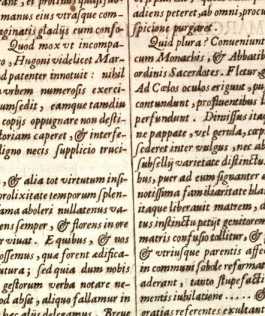 manus eius vtrasque com-
eginatis gladijs eum confo-
Quod mox vt incompa-
o, Hugoni videlicet Mar-
d patenter innotuit: nihil
vrbem numerosis exerci-
umsedit, eamque tamdiu
copijs oppugnare non desti-
toriam caperet, & interfe-
ligno necis supplicio truci-
, & alia tot virtutum insi-
prolixitate temporum splen-
ama aboleri nullatenus va-
ens semper, & florens in ore
r viuat. E quibus, & nos
ossemus, qua forent ædifica-
utura; sed quia dum nobis
gestorum verba notare ne-
od absit, aliquo fallamur in
hec alijs delegamus. Breue
adiens peteret, ab omni, procu
spicione purgaret.
Quid plura? Conueniunt
cum Monachis, & Abbatib
ordinis Sacerdotes. Fletur,
Ad Cœlos oculos eriguut, pu
contundunt, profluentibus l
perfundunt. Dimissus itaq
ne pappate, vel gerula, corp
sederet inter vulgus, nec ab
subsellij varietate distinctu
bus, puer ad eum signanter a
notissima familiaritate bla
itaque liberauit matrem, d
tus instinctu petijt genitorem
matris confusio tollitur, &
& vtriusque parentis affec
in communi sobole reformat
aderant, tanto stupefacti
mentis iubilatione ..... G
gratias referentes exultant